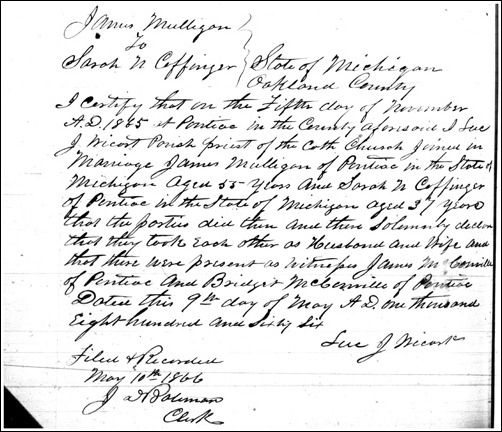 James Mulligan
To
Sarah N Coffinger
State of Michigan
Oakland County
I certify that on the Fifth day of November
A.D. 1865 at Pontiac in the County aforesaid I Luc
J Wicort Parish priest of the Cath Church Joined in
Marriage James Mulligan of Pontiac in the State of
Michigan Aged 55 Years And Sarah N Coffinger
of Pontiac in the State of Michigan aged 37 years
that the parties did then and there Solemnly declare
that they took Each other as Husband and Wife and
that there were present as witnesses James McConville
of Pontiac And Bridget McConville of Pontiac
Dated this 9th day of May A.D. one thousand
Eight hundred and Sixty Six
Luc J Wicort
Filed & Recorded
May 10th 1866
J
Clerk